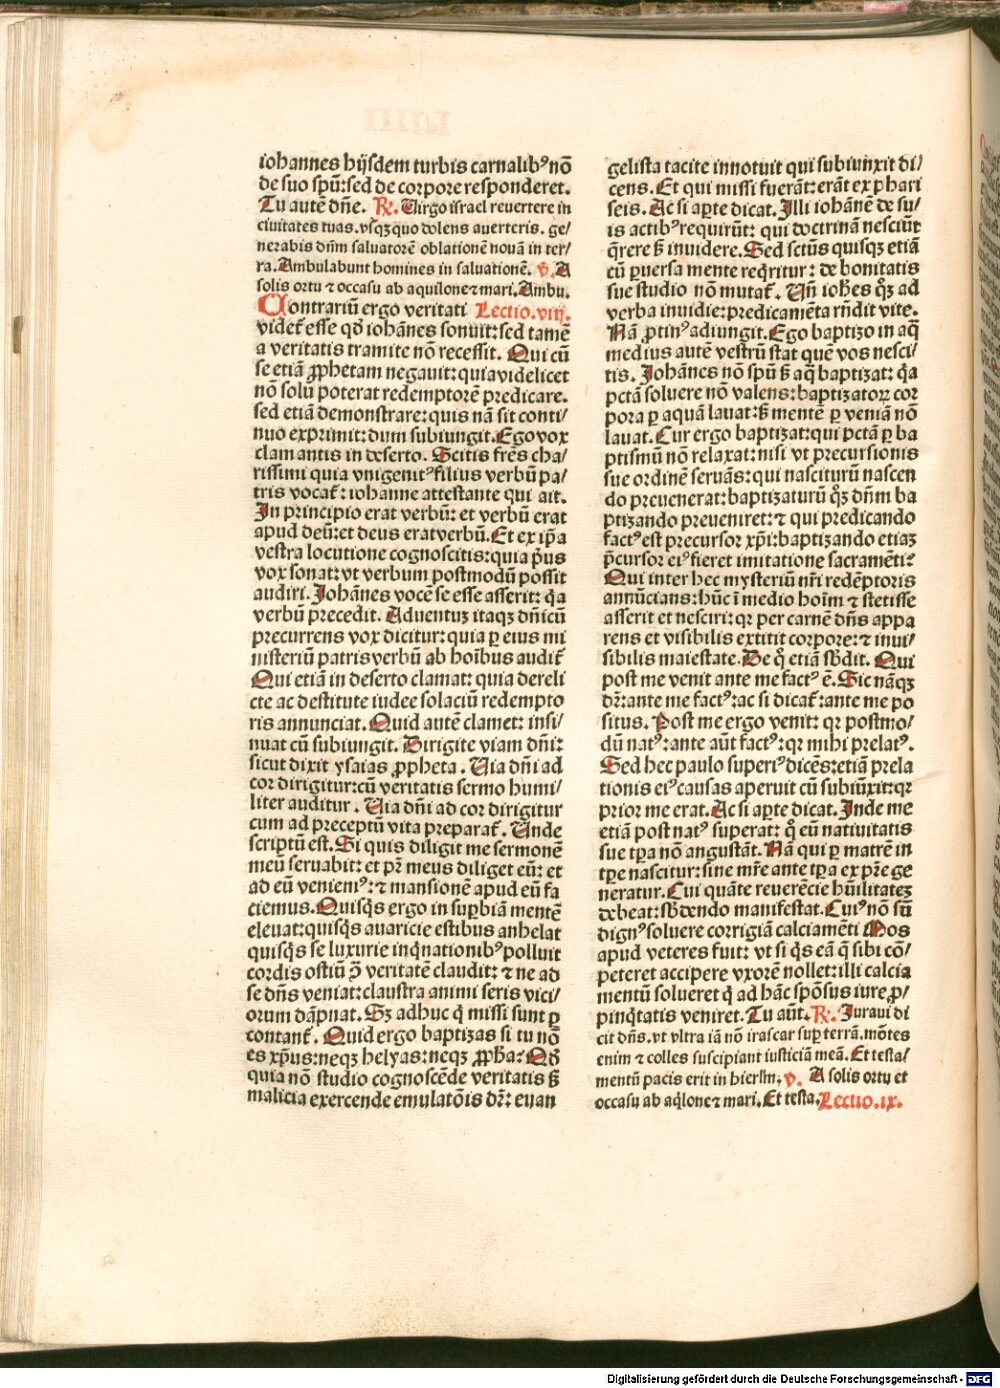 iohannes hijsdem turbis carnalibꝰ nō
de suo spū: sed de corpore responderet.
Tu autē dn̄e. ℞. Virgo israel reuertere in
ciuitates tuas. vsqꝫ quo dolens auerteris. ge/
nerabis dn̄m saluatorē oblationē nouā in ter/
ra. Ambulabunt homines in saluationē. ℣. A
solis ortu ⁊ occasu ab aquilone ⁊ mari. Ambu.
Contrariū ergo veritati Lectio.viij.
videt̄ esse qd̄ iohānes sonuit: sed tamē
a veritatis tramite nō recessit. Qui cū
se etiā ꝓphetam negauit: quia videlicet
nō solū poterat redemptorē predicare.
sed etiā demonstrare: quis nā sit conti/
nuo exprimit: dum subiungit. Ego vox
clamantis in deserto. Scitis frēs cha/
rissimi quia vnigenitꝰ filius verbū pa/
tris vocat̄: iohanne attestante qui ait.
In principio erat verbū: et verbū erat
apud deū: et deus erat verbū. Et ex ip̄a
vestra locutione cognoscitis: quia p̄us
vox sonat: vt verbum postmodū possit
audiri. Johānes vocē se esse asserit: q̄a
verbū precedit. Aduentuꝫ itaqꝫ dn̄icū
precurrens vox dicitur: quia ꝑ eius mi
nisteriū patris verbū ab hoībus audit̄
Qui etiā in deserto clamat: quia dereli
cte ac destitute iudee solaciū redempto
ris annunciat. Quid autē clamet: insi/
nuat cū subiungit. Dirigite viam dn̄i:
sicut dixit ysaias ꝓpheta. Via dn̄i ad
cor dirigitur: cū veritatis sermo humi/
liter auditur. Via dn̄i ad cor dirigitur
cum ad preceptū vita preparat̄. Vnde
scriptū est. Si quis diligit me sermonē
meū seruabit: et pr̄ meus diliget eū: et
ad eū veniemꝰ: ⁊ mansionē apud eū fa
ciemus. Quisq̄s ergo in suꝑbiā mentē
eleuat: quisq̄s auaricie estibus anhelat
quisq̄s se luxurie inq̄nationibꝰ polluit
cordis ostiū ꝯ̄ veritatē claudit: ⁊ ne ad
se dn̄s veniat: claustra animi seris vici/
orum dāpnat. Sꝫ adhuc q̄ missi sunt ꝑ
contant̄. Quid ergo baptizas si tu nō
es xp̄us: neqꝫ helyas: neqꝫ ꝓpha: Qd̄
quia nō studio cognoscēde veritatis sꝫ
malicia exercende emulatōis dr̄: euan
gelista tacite innotuit qui subiunxit di/
cens. Et qui missi fuerāt: erāt ex phari
seis. Ac si aꝑte dicat. Illi iohānē de su/
is actibꝰ requirūt: qui doctrinā nesciūt
q̄rere sꝫ inuidere. Sed sctūs quisqꝫ etiā
cū ꝑuersa mente req̄ritur: de bonitatis
sue studio nō mutat̄. Vn̄ ioh̄es qꝫ ad
verba inuidie: predicamēta rn̄dit vite.
Nā ꝓtinꝰ adiungit. Ego baptizo in aq̄
medius autē vestrū stat quē vos nesci/
tis. Johānes nō spū sꝫ aq̄ baptizat: q̄a
pctā soluere nō valens: baptizatoꝝ cor
pora ꝑ aquā lauat: sꝫ mentē ꝑ veniā nō
lauat. Cur ergo baptizat: qui pctā ꝑ ba
ptismū nō relaxat: nisi vt precursionis
sue ordinē seruās: qui nasciturū nascen
do preuenerat: baptizaturū qꝫ dn̄m ba
ptizando preueniret: ⁊ qui predicando
factꝰ est precursor xp̄i: baptizando etiaꝫ
p̄cursor eiꝰ fieret imitatione sacramēti:
Qui inter hec mysteriū nr̄i redēptoris
annūcians: hūc ī medio hoīm ⁊ stetisse
asserit et nesciri: qr per carnē dn̄s appa
rens et visibilis extitit corpore: ⁊ inui/
sibilis maiestate. De qͦ etiā sb̄dit. Qui
post me venit ante me factꝰ ē. Sic nāqꝫ
dr̄: ante me factꝰ: ac si dicat̄: ante me po
situs. Post me ergo venit: qr postmo/
dū natꝰ: ante aūt factꝰ: qr mihi prelatꝰ.
Sed hec paulo superiꝰ dicēs: etiā prela
tionis eiꝰ causas aperuit cū subiūxit: qr
prior me erat. Ac si aꝑte dicat. Inde me
etiā post natꝰ superat: qͦ eū natiuitatis
sue tp̄a nō angustāt. Nā qui ꝑ matrē in
tp̄e nascitur: sine mr̄e ante tp̄a ex pr̄e ge
neratur. Cui quāte reuerēcie hūilitateꝫ
debeat: sb̄dendo manifestat. Cuiꝰ nō sū
dignꝰ soluere corrigiā calciamēti Mos
apud veteres fuit: vt si q̄s eā q̄ sibi cō/
peteret accipere vxorē nollet: illi calcia
mentū solueret q̄ ad hāc spōsus iure ꝓ/
pinq̄tatis veniret. Tu aūt. ℞. Juraui di
cit dn̄s. vt vltra iā nō irascar suꝑ terrā. mōtes
enim ⁊ colles suscipiant iusticiā meā. Et testa/
mentū pacis erit in hierl̄m. ℣. A solis ortu et
occasu ab aq̄lone ⁊ mari. Et testa. Lectio.ix.
Digitalisierung gefördert durch die Deutsche Forschungsgemeinschaft - DFG